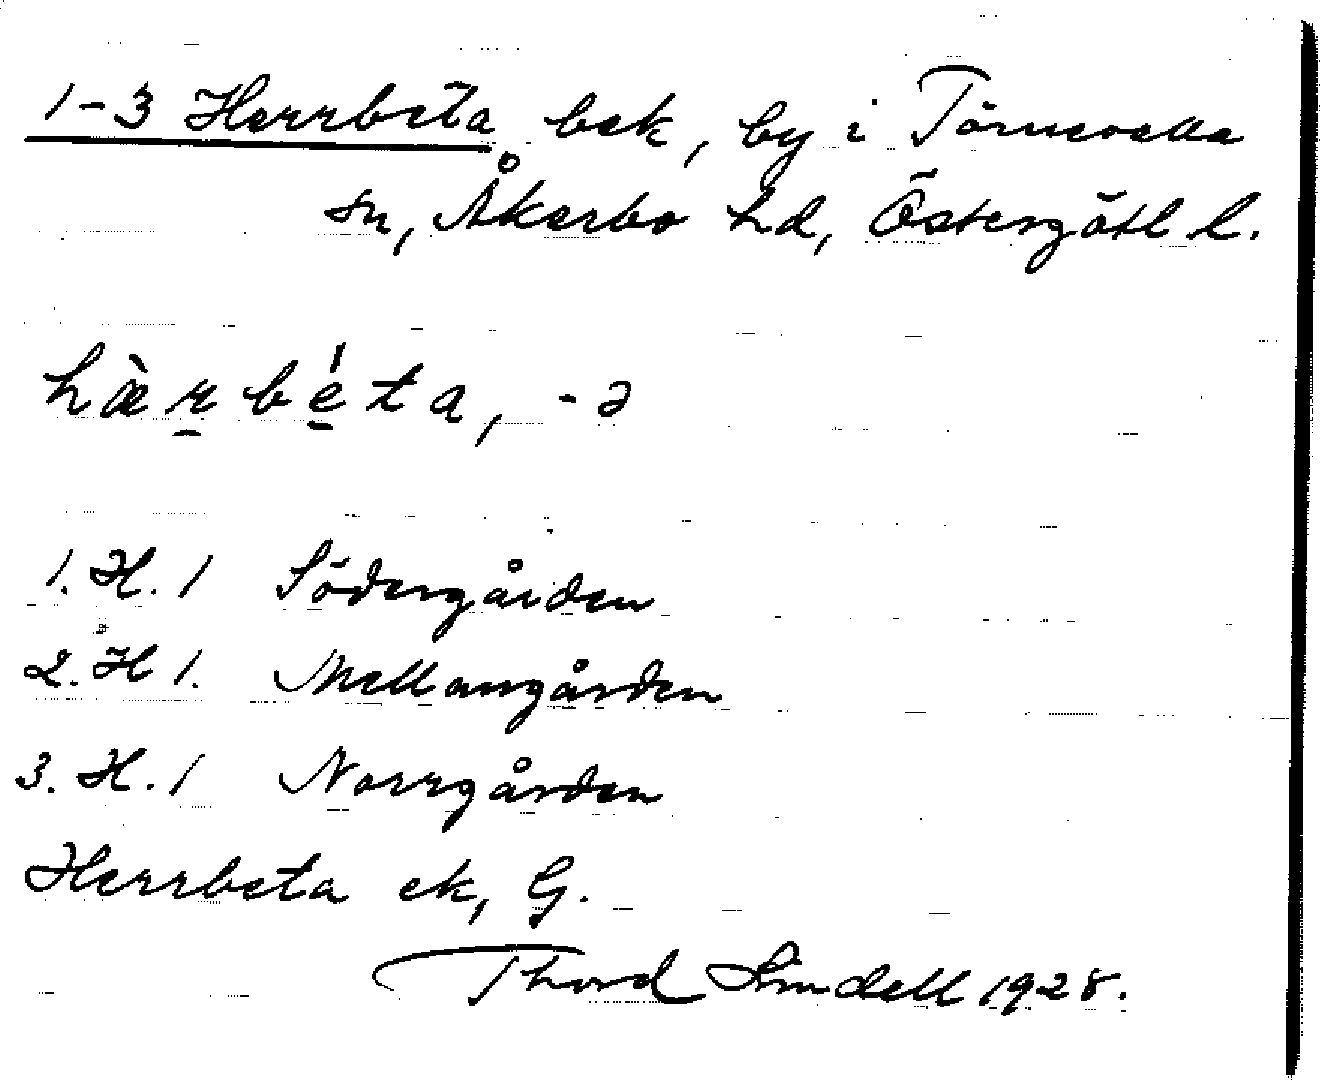 1-3 Herrbeta bek, by i Törnevalla
sn, Åkerbo hd, Östergötl l.
hæ̀r̠bé̠ta, -ə
1. H. 1 Södergården
2. H 1. Mellangården
3. H. 1 Norrgården
Herrbeta ek, G.
Thord Lindell 1928.